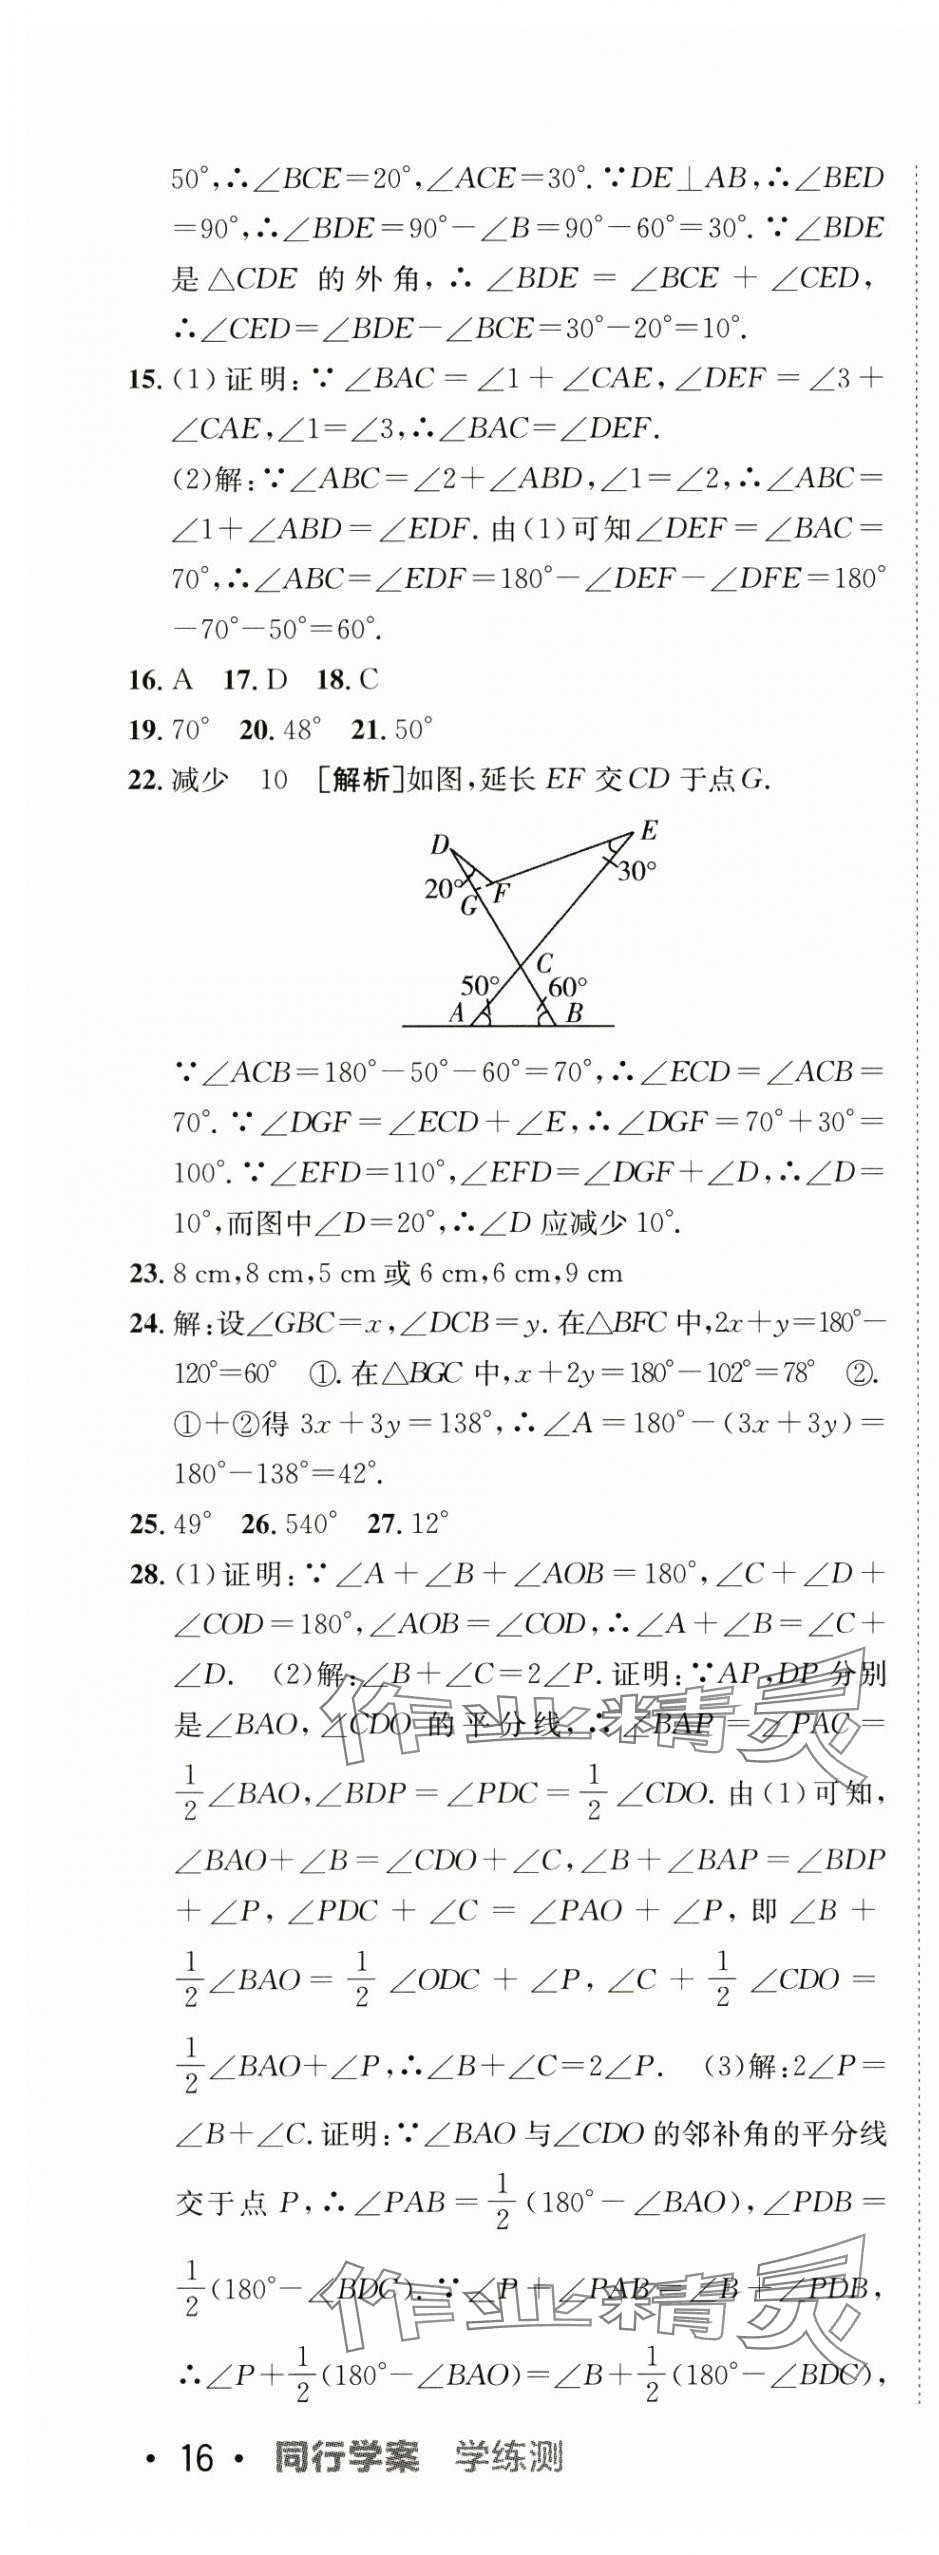 50°,∴∠BCE=20°,∠ACE=30°.∵DE⊥AB,∴∠BED
=90°,∴∠BDE=90°-∠B=90°-60°=30°.∵∠BDE
是△CDE 的外角,∴∠BDE=∠BCE+∠CED,
∴∠CED=∠BDE-∠BCE=30°-20°=10°.
15.(1)证明:∵∠BAC=∠1+∠CAE,∠DEF=∠3+
∠CAE,∠1=∠3,∴∠BAC=∠DEF.
(2)解:∵∠ABC=∠2+∠ABD,∠1=∠2,∴∠ABC=
∠1+∠ABD=∠EDF.由(1)可知∠DEF=∠BAC=
70°,∴∠ABC=∠EDF=180°-∠DEF-∠DFE=180°
-70°-50°=60°.
16.A 17.D 18.C
19.70° 20.48° 21.50°
22.减少 10 [解析]如图,延长EF交CD于点G.
D
E
20°
G
F
30°
C
50°
60°
A
B
∵∠ACB=180°-50°-60°=70°,∴∠ECD=∠ACB=
70°.∵∠DGF=∠ECD+∠E,∴∠DGF=70°+30°=
100°.∵∠EFD=110°,∠EFD=∠DGF+∠D,∴∠D=
10°,而图中∠D=20°,∴∠D应减少10°.
23.8 cm,8 cm,5 cm或6 cm,6 cm,9 cm
24.解:设∠GBC=x,∠DCB=y.在△BFC中,2x+y=180°-
120°=60° ①.在△BGC中,x+2y=180°-102°=78° ②.
①+②得3x+3y=138°,∴∠A=180°-(3x+3y)=
180°-138°=42°.
25.49° 26.540° 27.12°
28.(1)证明:∵∠A+∠B+∠AOB=180°,∠C+∠D+
∠COD=180°,∠AOB=∠COD,∴∠A+∠B=∠C+
∠D. (2)解:∠B+∠C=2∠P.证明:∵AP,DP分别
是∠BAO,∠CDO的平分线,∴∠BAP=∠PAC=
1/2∠BAO,∠BDP=∠PDC=1/2∠CDO.由(1)可知,
∠BAO+∠B=∠CDO+∠C,∠B+∠BAP=∠BDP
+∠P,∠PDC+∠C=∠PAO+∠P,即∠B+
1/2∠BAO=1/2∠ODC+∠P,∠C+1/2∠CDO=
1/2∠BAO+∠P,∴∠B+∠C=2∠P. (3)解:2∠P=
∠B+∠C.证明:∵∠BAO与∠CDO的邻补角的平分线
交于点P,∴∠PAB=1/2(180°-∠BAO),∠PDB=
1/2(180°-∠BDC).∵∠P+∠PAB=∠B+∠PDB,
∴∠P+1/2(180°-∠BAO)=∠B+1/2(180°-∠BDC),
作业精灵
作业精灵
·16· 同行学案 学练测